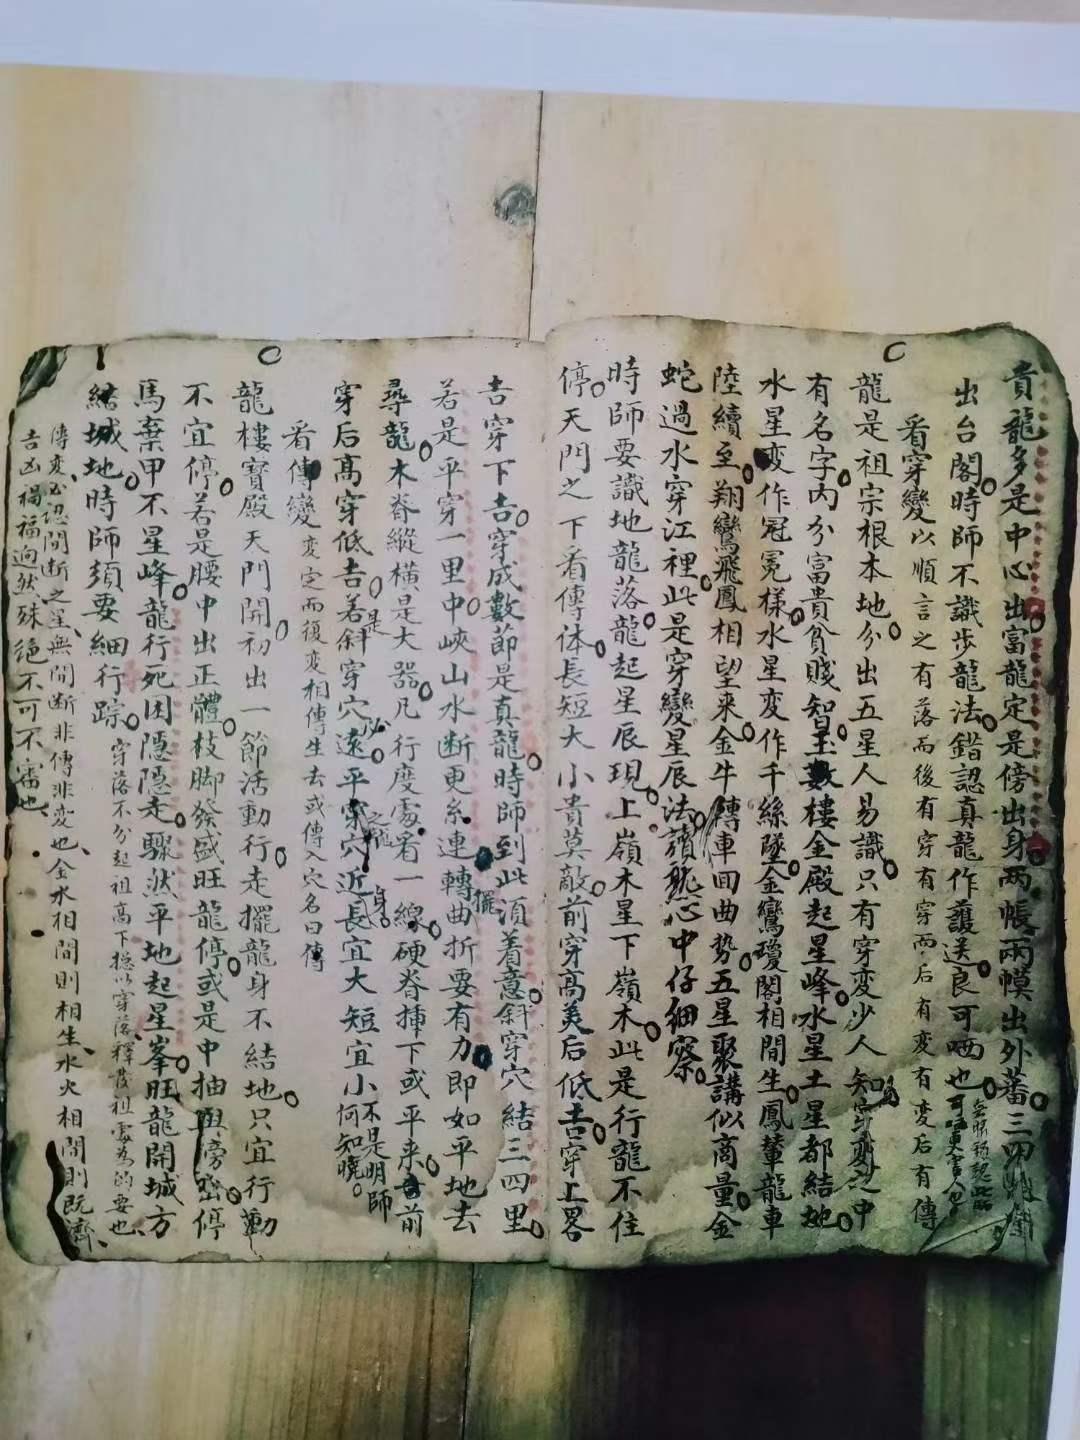 貴龍多是中心出富龍定是傍出身两帳兩幙出外蕃三四
出台閣時師不識歩龍法錯認真龍作護送良可哂也
看穿變以順言之有落而後有穿有穿而后有變有变后有傳
龍是祖宗根本地分出五星人易識只有穿变少人知
有名字內分富貴貧賤智玉數樓金殿起星峰水星土星都結
水星变作冠冕樣水星变作千絲墜金鸞瓊閣相間生鳳輦龍車
陸續至翔鸞飛鳳相望来金牛轉車囬曲势五星聚講似商量金
蛇過水穿江裡此是穿變星辰法心中仔細察
時師要識地龍落龍起星辰現上嶺木星下嶺木此是行龍不住
停天門之下看傳体長短大小貴莫敵前穿高美后低吉穿上畧
吉穿下吉穿成數節是真龍時師到此須着意斜穿穴結三四里
若是平穿一里中峽山水断更糸連轉擺曲折要有力即如平地去
尋龍木脊縱橫是大器凡行度處看一線硬脊挿下或平来前
穿后高穿低吉若是斜穿穴遠平穿穴近長宜大短宜小不是明師何知曉
看傳變变定而復变相傳生去或傳入穴名曰傳
龍樓寳殿天門開初出一節活動行走擺龍身不結地只宜行動
不宜停若是腰中出正體枝脚發盛旺龍停或是中抽與傍出停
馬棄甲不星峰龍行死困隱隱走驟然平地起星峯旺龍開城方
結城地時師須要細行踪穿落不分起祖高下揔以穿落釋發祖處為的要也
傳变公認間断之星無間断非傳非变也金水相間則相生水火相間則既濟
吉凶禍福逈然殊絶不可不審也